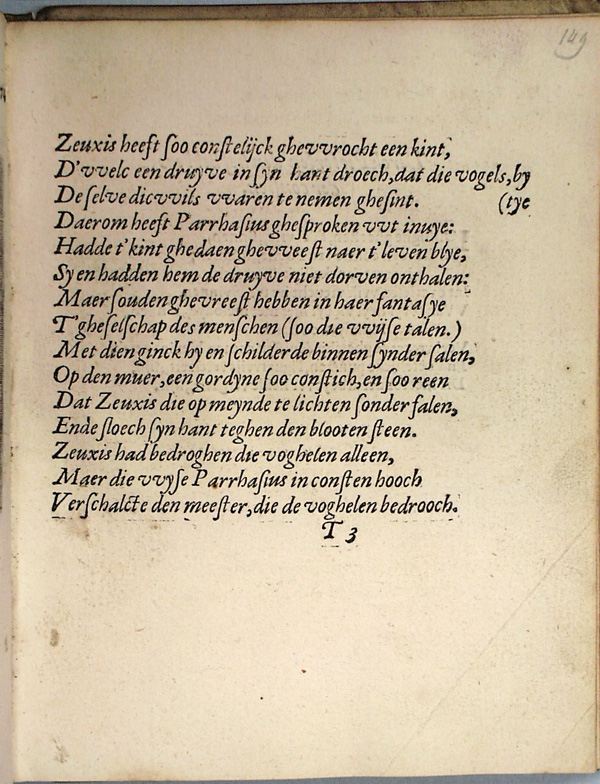 149
Zeuxis heeft ſoo conſtelijck ghevvrocht een kint,
D'vvelc een druyve in ſyn hant droech, dat die vogels, by
De ſelve dicvvils vvaren te nemen gheſint. (tye
Daerom heeft Parrhaſius gheſproken vvt inuye:
Hadde t'kint ghedaen ghevveeſt naer t'leven blye,
Sy en hadden hem de druyve niet dorven onthalen:
Maer ſouden ghevreeſt hebben in haer fantaſye
T'gheſelſchap des menſchen (ſoo die vvijſe talen.)
Met dien ginck hy en ſchilderde binnen ſynder ſalen,
Op den muer, een gordyne ſoo conſtich, en ſoo reen
Dat Zeuxis die op meynde te lichten ſonder falen,
Ende ſloech ſyn hant teghen den blooten ſteen.
Zeuxis had bedroghen die voghelen alleen,
Maer die vvyſe Parrhaſius in conſten hooch
Verſchalcte den meeſter, die de voghelen bedrooch.
T 3